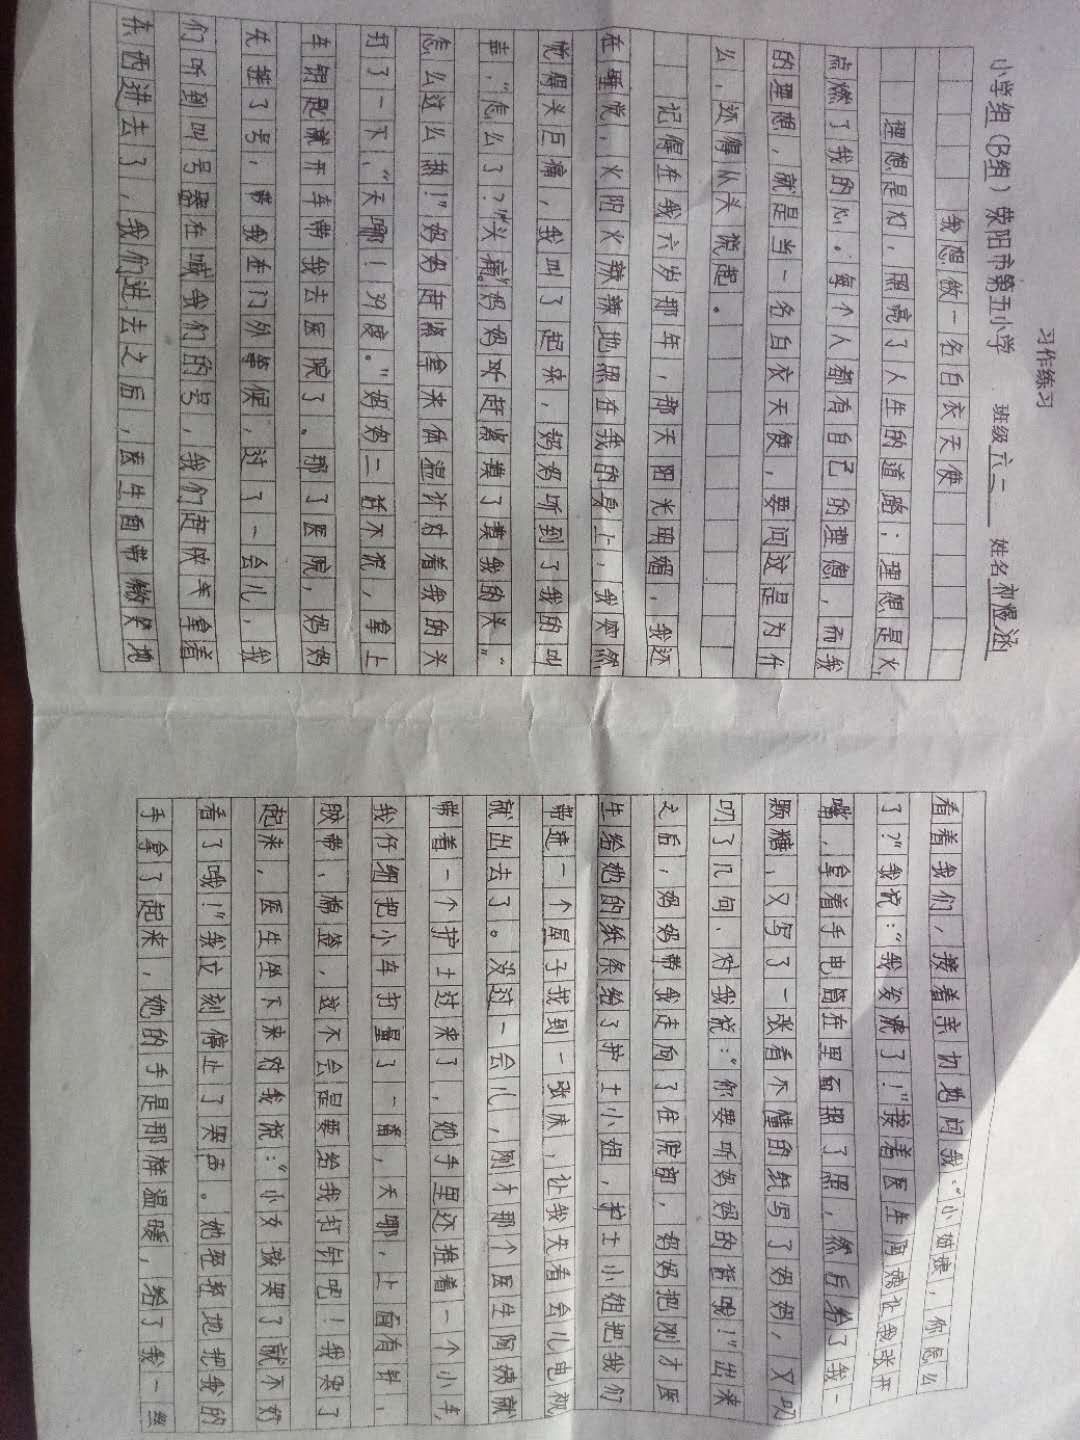 习作练习
小学组（B组）荥阳市第五小学 班级六二 姓名 煜涵
我想做一名白衣天使
理想是灯，照亮了人生的道路；理想是火，
点燃了我的心．每个人都有自己的理想，而我
的理想，就是当一名白衣天使，要问这是为什
么，还得从头说起．
记得在我六岁那年，那天阳光明媚，我还
在睡觉，火阳火辣辣地照在我的身上，我突然
觉得头巨痛，我叫了起来，妈妈听到了我的叫
声，“怎么了？”“头痛”妈妈听赶紧摸了摸我的头。“
怎么这么热！”妈妈赶紧拿来体温计对着我的头
打了一下，“天哪！39度。”妈妈二话不说，拿上
车钥匙就开车带我去医院了．那了医院，妈妈
先挂了号，带我在门外等候，过了一会儿，我
们听到叫号器在喊我们的号，我们赶快拿着
东西进去了，我们进去之后，医生面带微笑地
看着我们，接着亲切地问我：“小姑娘，你怎么
了？”我说：“我发烧了！”接着医生阿姨让我张开
嘴，拿着手电筒在里面照了照，然后给了我一
颗糖，又写了一张看不懂的纸写了妈妈，又叨
叨了几句，对我说：“你要听妈妈的话哦！”出来
之后，妈妈带我走向了住院部，妈妈把刚才医
生给她的纸条给了护士小姐，护士小姐把我们
带进一个屋子找到一张床，让我先看会儿电视
就出去了。没过一会儿，刚才那个医生阿姨就
带着一个护士过来了，她手里还推着一个小车，
我仔细把小车打量了一番，天哪，上面有针、
胶带、棉签，这不会是要给我打针吧！我哭了
起来，医生坐下来对我说：“小女孩哭了就不好
看了哦！”我立刻停止了哭声．她轻轻地把我的
手拿了起来，她的手是那样温暖，给了我一丝